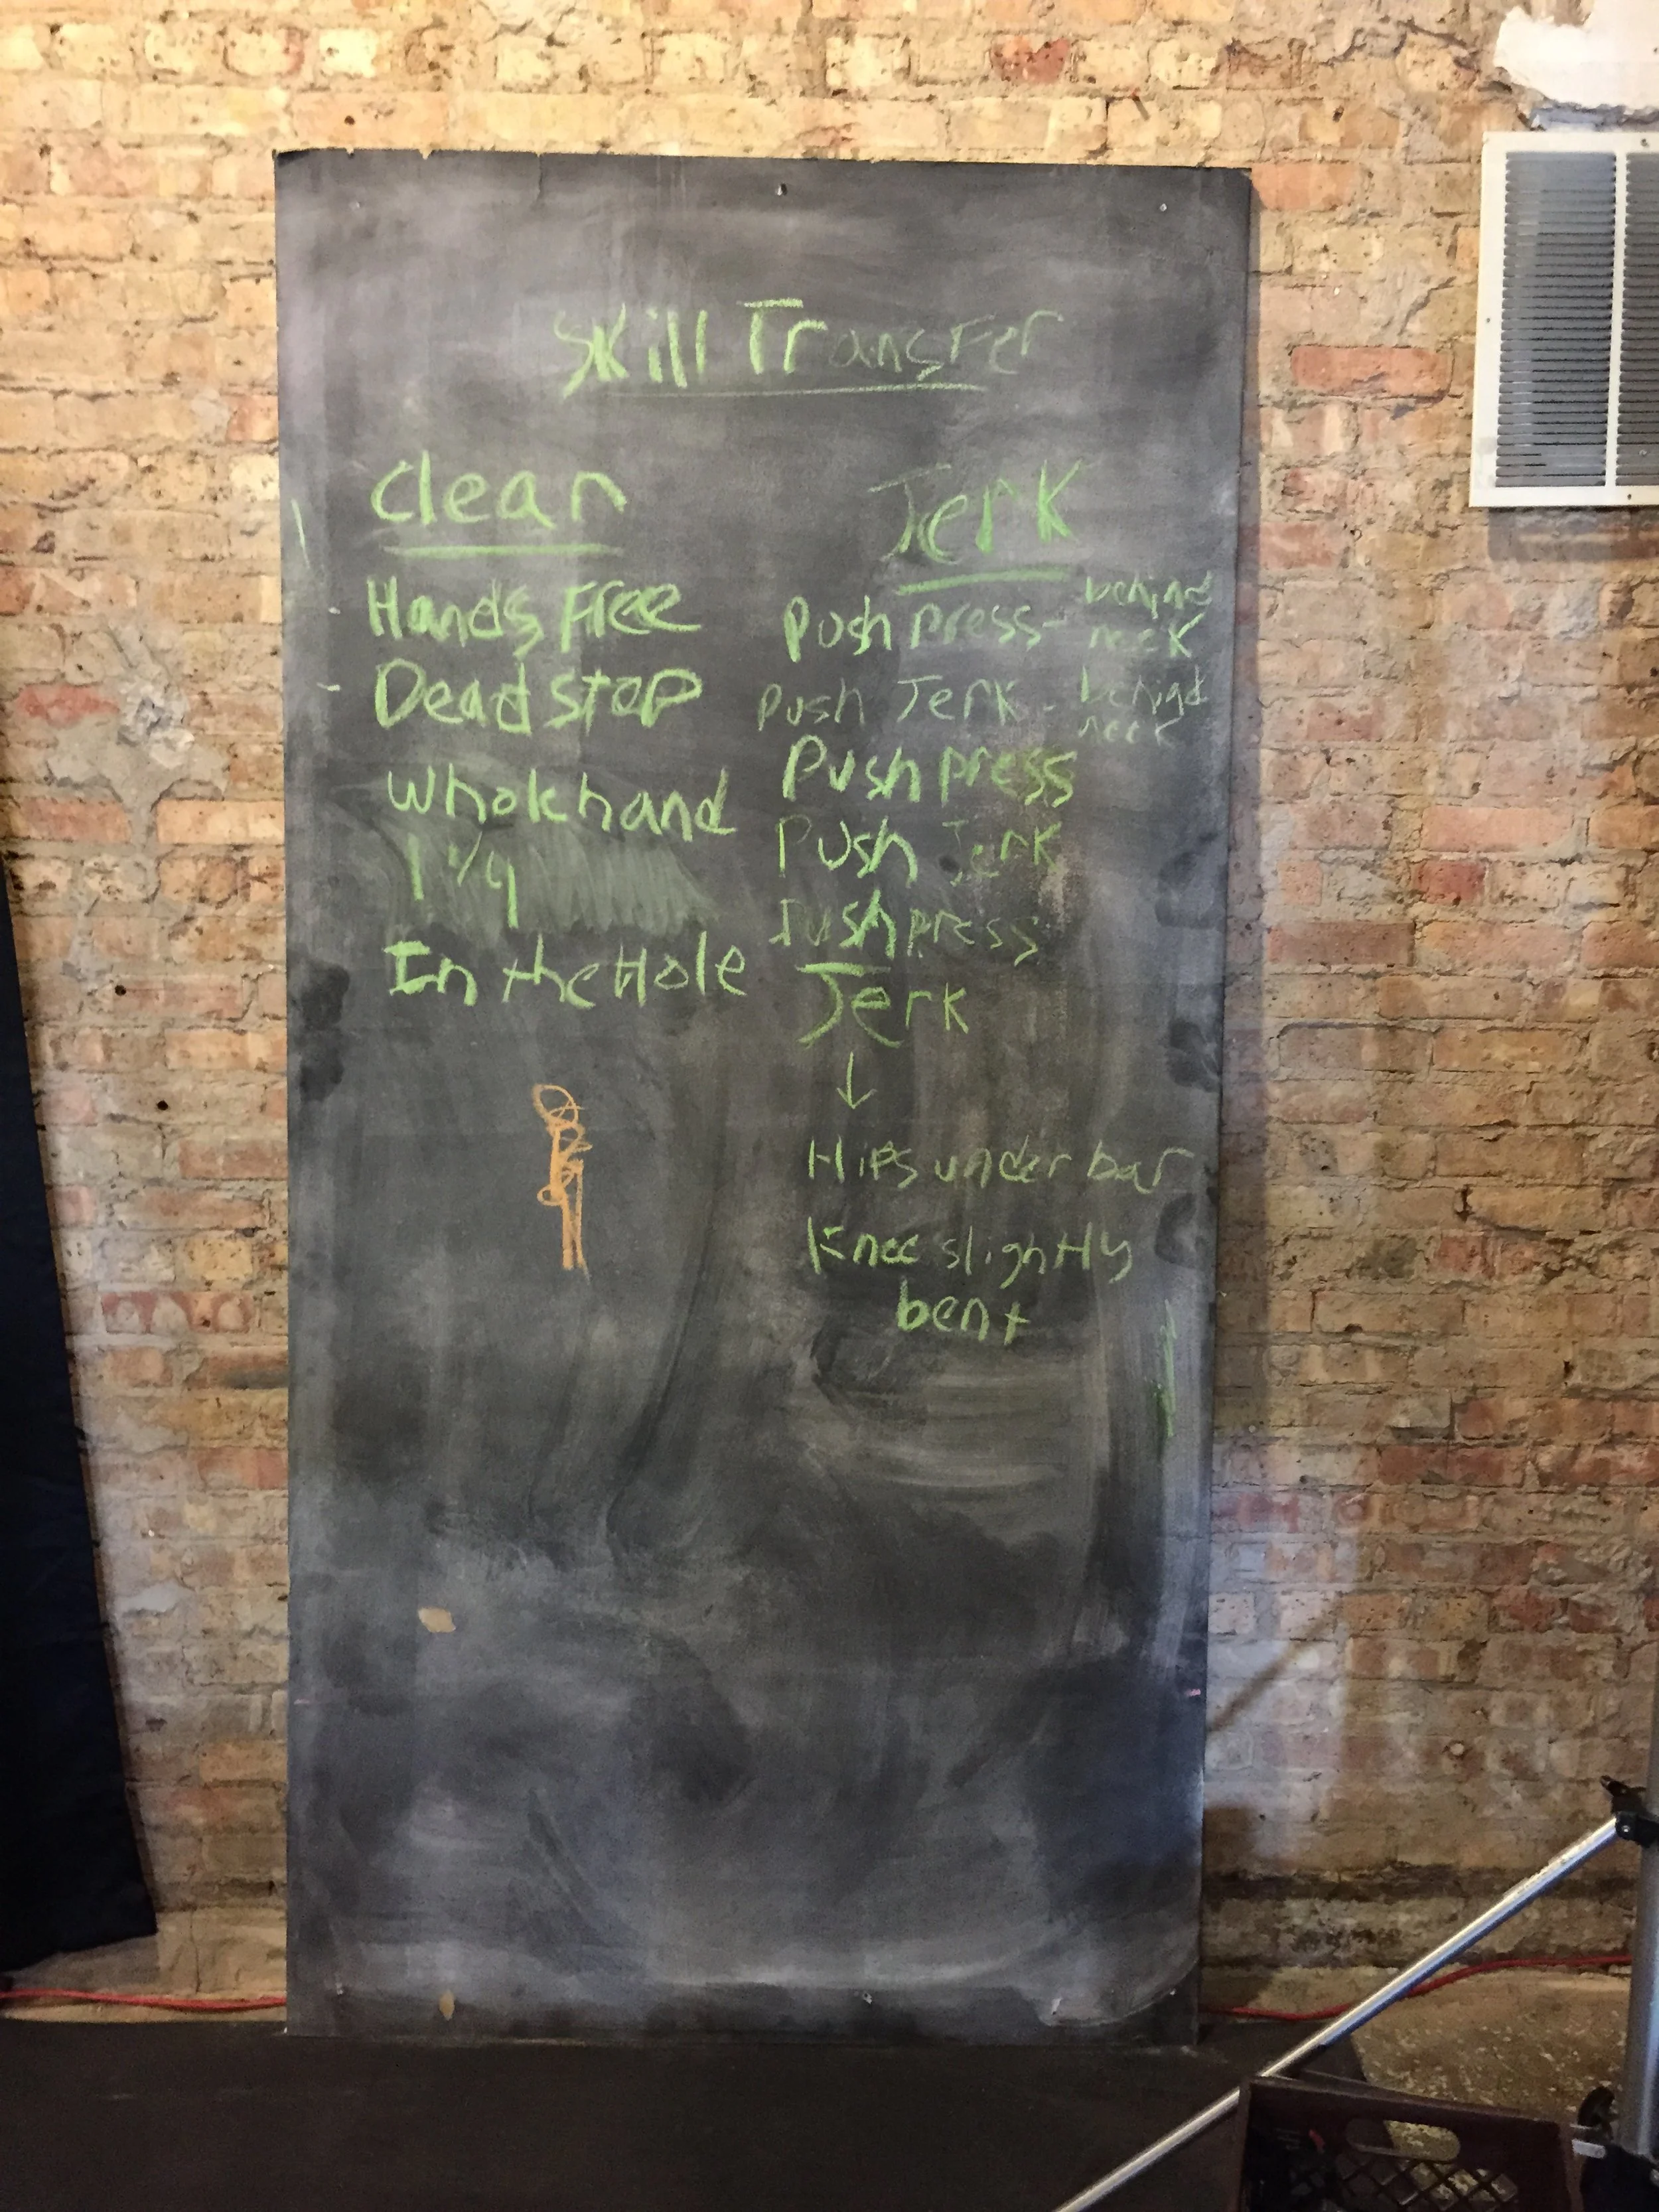 Skill Transfer
Clean
Hands Free
Dead Stop
Whole hand
1 1/4
In the Hole
Jerk
Push press - behind neck
Push Jerk - behind neck
Push press
Push Jerk
Push press
Jerk
↓
Hips under bar
Knee slightly
bent